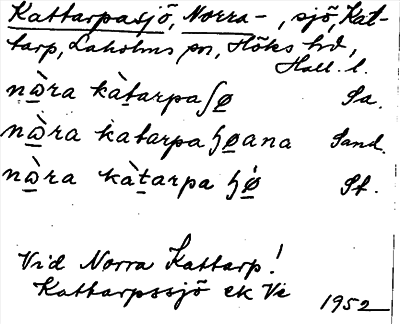 Kattarpasjö, Norra-, sjö, Kat-
tarp, Laholms sn, Höks hd,
Hall. l.
nὼ̱ra kàt̲arpaʃø̲ Sa.
nὼ̱ra katarpa ɧø̲ana Sand.
nὼ̱ra kàt̲arpa ɧǿ̲ St.
Vid Norra Kattarp!
Kattarpssjö ek Vé
1952